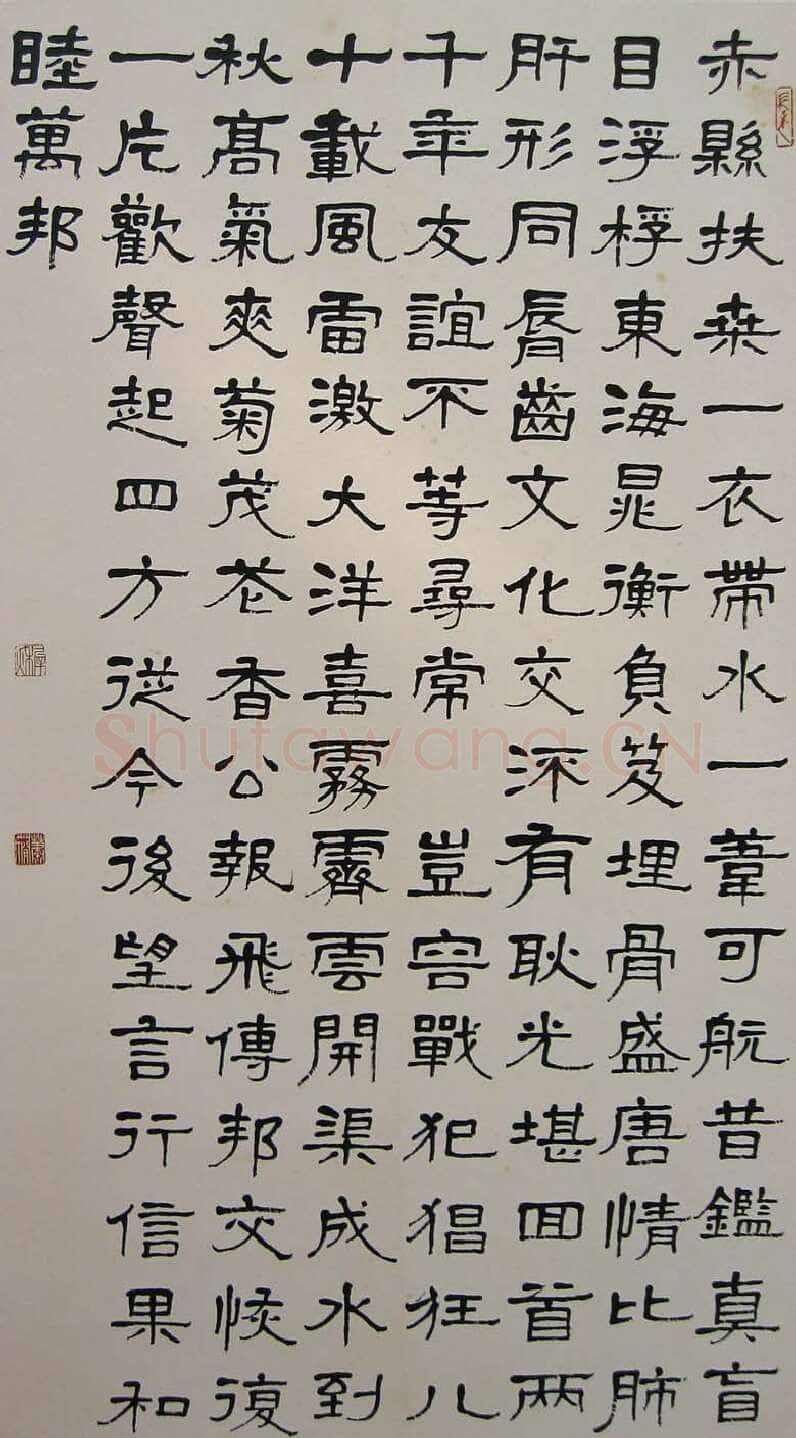 赤縣扶桒一衣帶水一葦可航昔鑑真盲
目浮桴東海晁衡負笈埋骨盛唐情比肺
肝形同脣齒文化交深有耿光堪囬首兩
千年友誼不等尋常 豈容戰犯猖狂八
十載風雷激大洋喜霧霽雲開渠成水到
秋髙氣爽菊茂花香公報飛傳邦交恢復
一片歡聲起四方從今後望言行信果和
睦萬邦
Shufawang.CN